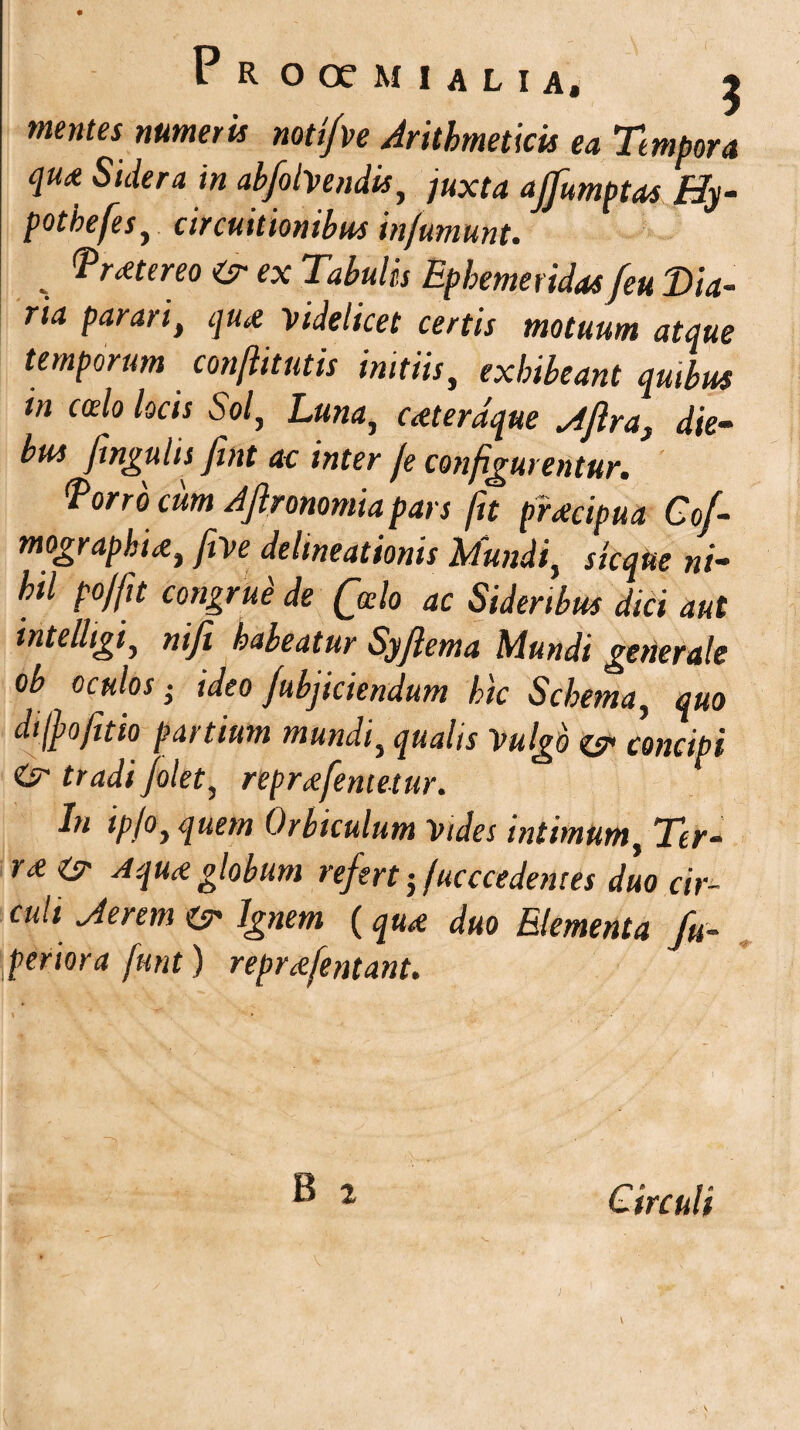 PROOEMIALIA. 3
mentes numeris notiſve Arithmeticis ea Tempora
quæ Sidera in abſolvendis, juxta aſſumptas Hy-
potheſes, circuitionibus inſumunt.
Prætereo & ex Tabulis Ephemeridas ſeu Dia-
ria parari, quæ videlicet certis motuum atque
temporum conſtitutis initiis, exhibeant quibus
in cœlo locis Sol, Luna, cæteráque Aſtra, die-
bus ſingulis ſint ac inter ſe configurentur.
Porrò cùm Aſtronomia pars ſit præcipua Coſ-
mographiæ, ſive delineationis Mundi, sicque ni-
hil poſſit congruè de Cœlo ac Sideribus dici aut
intelligi, niſi habeatur Syſtema Mundi generale
ob oculos; ideo ſubjiciendum hìc Schema, quo
diſpoſitio partium mundi, qualis vulgò & concipi
& tradi ſolet, repræſentetur.
In ipſo, quem Orbiculum vides intimum, Ter-
ræ & Aquæ globum refert; ſucccedentes duo cir-
culi Aerem & Ignem ( quæ duo Elementa ſu-
periora ſunt ) repræſentant.
B 2 Circuli